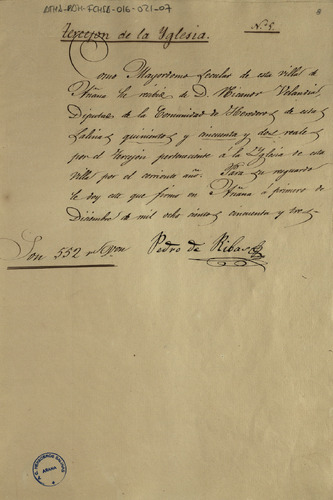 ATHA-DAH-FCHSA-016-021-07
8
Torrejon de la Yglesia.
No. 5.
Como Mayordomo Secular de esta villa
de Añana he recibido de D. Nicanor Velandia
Diputado de la Comunidad de Herederos de estas
Salinas quinientos y cincuenta y dos reales
por el torrejon perteneciente á la Yglesia de esta
villa por el corriente año. Para su resguardo
le doy este que firmo en Añana á primero de
Diciembre de mil ocho cientos cincuenta y tres
Son 552 rs
Pedro de Ribas
AÑANA